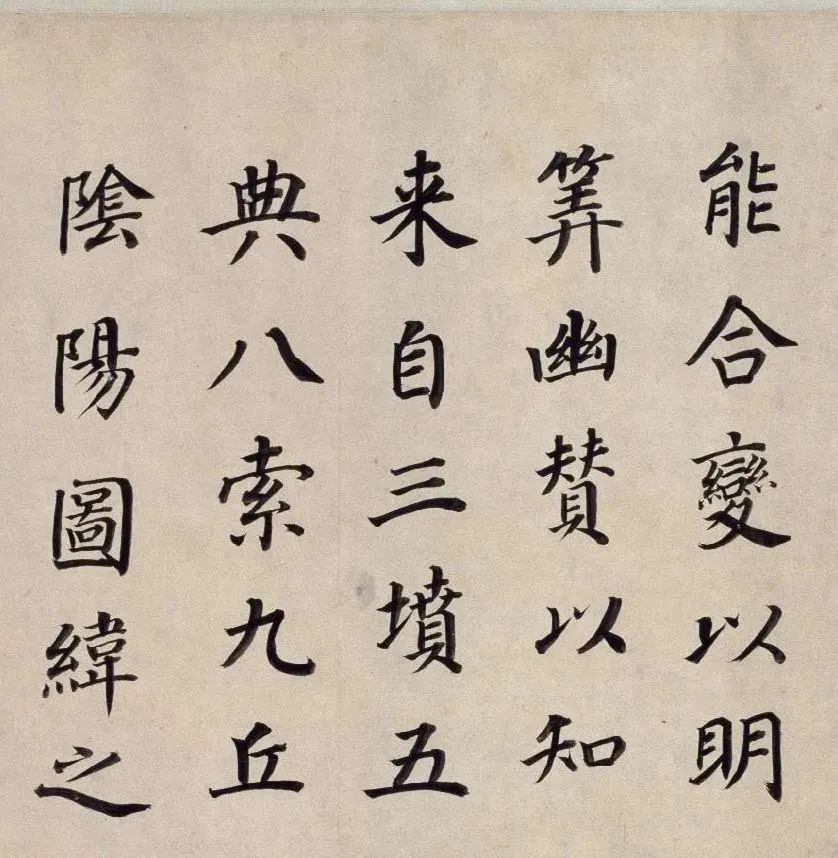 能合變以明
筭幽賛以知
来自三墳五
典八索九丘
陰陽圖緯之